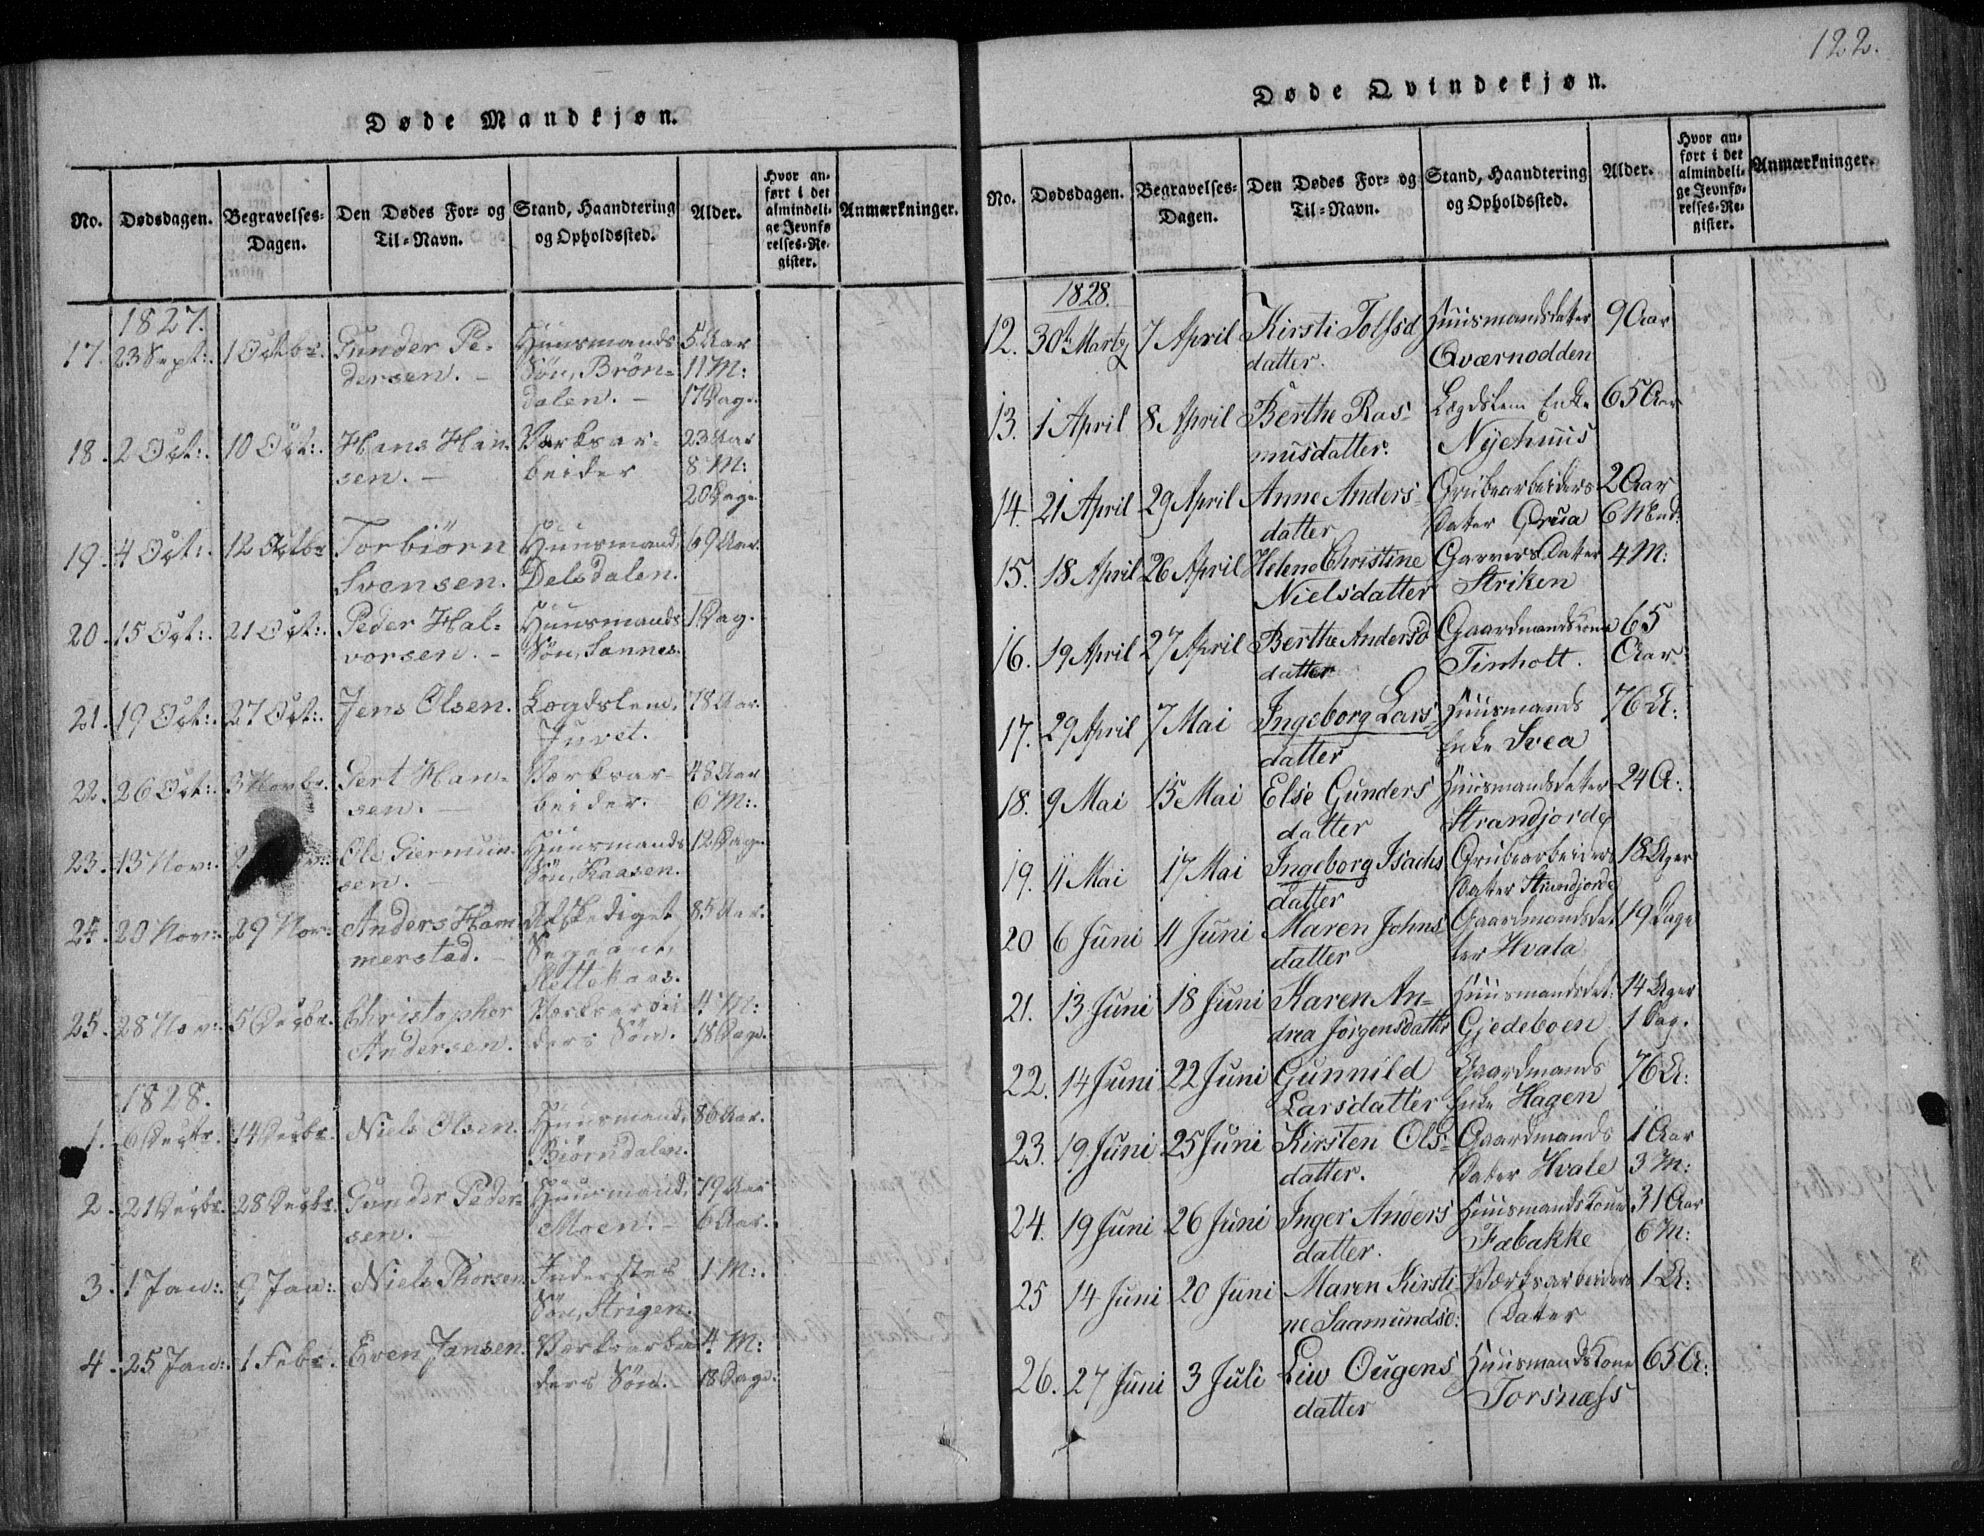 Døde Mandkjøn.
No. Dødsdagen. Begravelses-Dagen. Den Dødes For- og Til-Navn. Stand, Haandtering og Opholdssted. Alder. Hvor anført i det almindelige Jevnførelses-Register. Anmærkninger.
1827.
17. 23 Sept:. 1 Octbr. Gunder Pe- Huusmands 5 Aar
dersen. – Søn, Brön- 11 M:
dalen. – 17 Dage.
18. 2 Oct:. 10 Oct:. Hans Han- Værksar- 23 Aar
sen. – beider 8 M:
20 Dage.
19. 4 Oct:. 12 Octbr Torbiörn Huusmand, 69 Aar.
Svensen. Delsdalen.
20. 15 Oct:. 21 Oct:. Peder Hal- Huusmands 1 Dag.
vorsen. – Søn, Sannes.
21. 19 Oct:. 27 Oct:. Jens Olsen. Lægdslem, 78 Aar.
Juvet.
22. 26 Oct:. 3 Novbr. Gert Han- Værksar- 48 Aar
sen. – beider. 6 M:.
23. 13 Nov:. Ole Giermun- Huusmands 12 Dage.
sen. – Søn, Kaasen.
24. 20 Nov:. 29 Nov: Anders Ham Afskediget 85 Aar.
merstad. – Sergeant,
25. 28 Nov: 5 Decbr. Christopher Værksarbei 4 M:
Andersen. ders Søn. 18 Dage.
1828.
1. 6 Decbr. 14 Decbr. Niels Olsen. Huusmand, 86 Aar.
Biörndalen.
2. 21 Decbr. 28 Decbr. Gunder Peder- Huusmand, 79 Aar
sen. – Moen. –
3. 1 Jan:. 9 Jan:. Niels Thorsen Inderstes 1 M:.
Søn, Strigen.
4. 25 Jan:. 1 Febr. Even Jansen. Værksarbei 4 M:
ders Søn. – 18 Dage.
122.
Døde Qvindekjøn.
No. Dødsdagen. Begravelses-Dagen. Den Dødes For- og Til-Navn. Stand, Haandtering og Opholdssted. Alder. Hvor anført i det almindelige Jevnførelses-Register. Anmærkninger.
1828.
12. 30te Marts 7 April Kirsti Tolfsd Huusmandsdater 9 Aar
datter. Qværnodden
13. 1 April 8 April Berthe Ras- Lægdslem Enke 65 Aar
musdatter. Nyehuus
14. 21 April 29 April Anne Anders- Grubearbeiders 2 Aar
datter Dater Grua 6 Mnd:
15. 18 April 26 April Helene Christine Garvers Dater 4 M:
Nielsdatter Striken
16. 19 April 27 April Berthe Andersd Gaardmandskone 65
datter Tinholt. Aar
17. 29 April 7 Mai Ingeborg Lars Huusmands 76 A:
datter Enke Svea
18. 9 Mai 15 Mai Else Gunders Huusmandsdater 24 A:
datter Strandjorde
19. 11 Mai 17 Mai Ingeborg Isachs Grubearbeiders 18 Uger
datter Dater Strandjorde
20 6 Juni 11 Juni Maren Johns Gaardmandsdat 19 Dage
datter ter Hvala
21. 13 Juni 18 Juni Karen An- Huusmandsdat: 14 Uger
drea Jørgensdatter Gjedeboen 1 Dag.
22. 14 Juni 22 Juni Gunnild Gaardmands 76 A:
Larsdatter Enke Hagen
23. 19 Juni 25 Juni Kirsten Ols- Gaardmands 1 Aar
datter. Dater Hvale 3 M:
24. 19 Juni 26 Juni Inger Anders Huusmandskone 31 Aar
datter. Fæbakke 6 M:
25 14 Juni 20 Juni Maren Kirsti- Værksarbeiders 1 A:
ne Saamundsd: Dater
26. 27 Juni 3 Juli Liv Ougens Huusmandskone 65 A:
datter Torsnæss